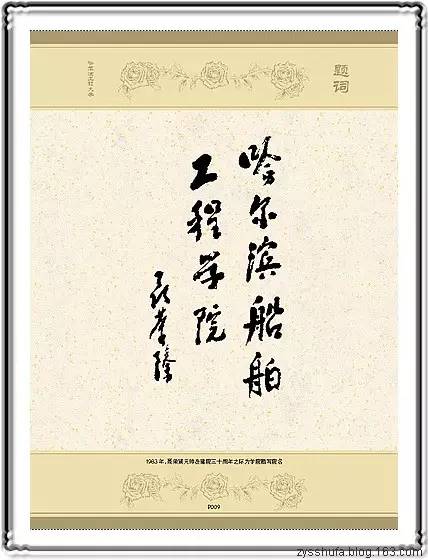 题词
哈尔滨工程大学
哈尔滨船舶
工程学院
聂荣臻
1983年，聂荣臻元帅在建院三十周年之际为学院题写院名
P009
zysshufa.blog.163.com